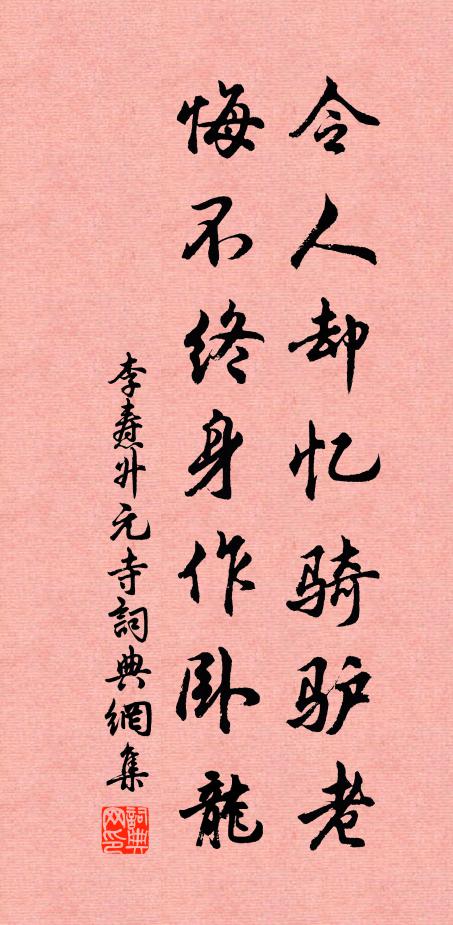 令人却忆骑驴老
悔不终身作卧龍
李焘升元寺詞典網集
詞典网印